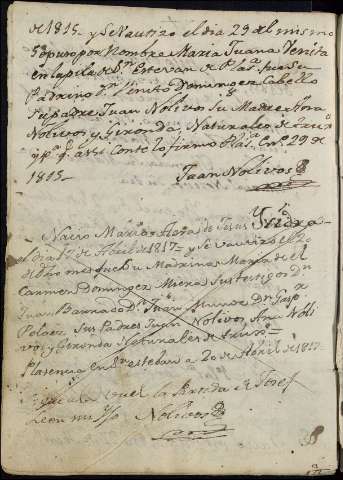 de 1815 - y Se Vautizo el dia 29 del mismo
Se puso por Nombre Maria Juana Venita
en la pila de Sn Estevan de Plasa fue su
Padrino Dn Venito Dominguez Cabello
Su padre Juan Nolivos Su Madre Ana
Nolivos y Gironda, Naturales de
y pa q asi Conste lo firmo Plasa Eno 29 de
1815 -
Juan Nolivos
Nacio Maria de Jesus Ysidra
el dia 17 de Abril de 1817 - y se vautizo el 20
de dho mes fue su Madrina Maria del
Carmen Dominguez Miera Sus testigos Dn
Juan Barnado Dn Juan Munoz Dn Gasp
Pelaez Sus Padres Juan Nolivos Ana Noli
vos y Gironda Naturales de
Plasencia en Sn esteban a 20 de Abril de 1817
de Josef
Leon
Nolivos